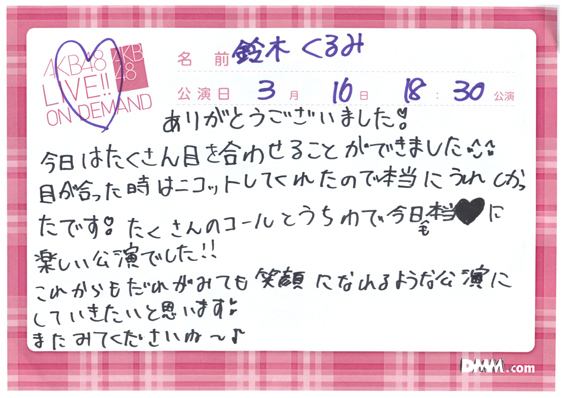 AKB48
LIVE!!
ON DEMAND
AKB
48
名 前 鈴木 くるみ
公演日 3 月 16 日 18 : 30 公演
ありがとうございました!
今日はたくさん目を合わせることができました^^
目が合った時はニコットしてくれたので本当にうれしかっ
たです! たくさんのコールとうちわで今日も本当♥に
楽しい公演でした!!
これからもだれがみても笑顔になれるような公演に
していきたいと思います!
またみてくださいね〜♪
DMM.com